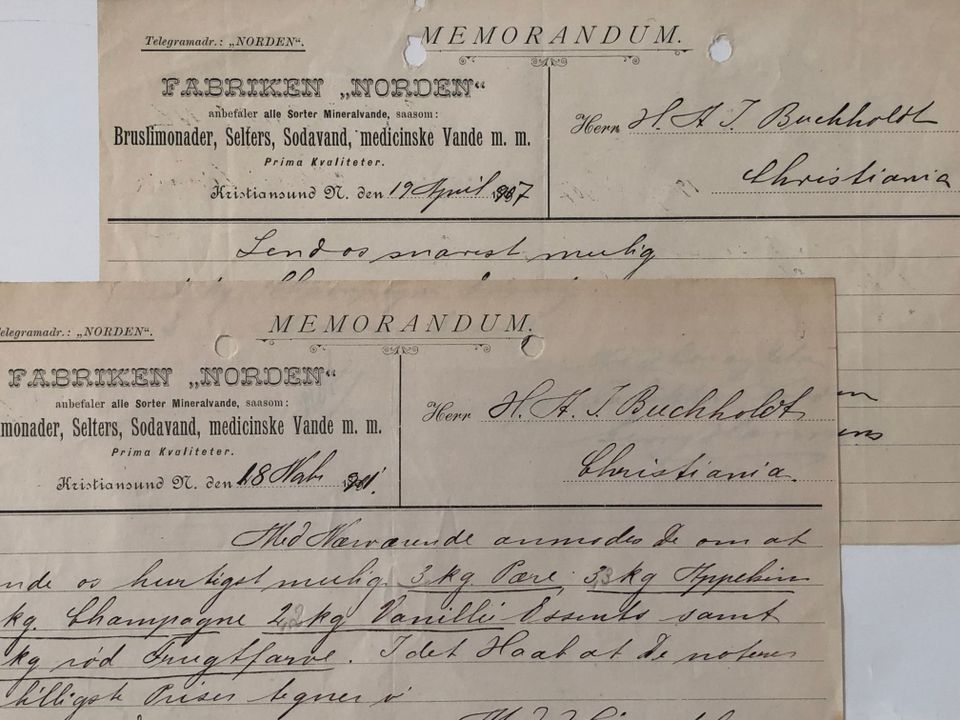 Telegramadr.: „NORDEN“.
MEMORANDUM.
FABRIKEN „NORDEN“
anbefaler alle Sorter Mineralvande, saasom:
Bruslimonader, Selters, Sodavand, medicinske Vande m. m.
Prima Kvaliteter.
Kristiansund N. den 19 April 1907
Herrn H. A. I. Buchholdt
Christiania
Send os snarest mulig
Telegramadr.: „NORDEN“.
MEMORANDUM.
FABRIKEN „NORDEN“
anbefaler alle Sorter Mineralvande, saasom:
monader, Selters, Sodavand, medicinske Vande m. m.
Prima Kvaliteter.
Kristiansund N. den 18
Herr H. A. I. Buchholdt
Christiania.
Med Nærværende anmodes De om at
nde os hurtigst mulig 3 kg. Pære, 3 kg Appelsin
kg. Champagne 2 kg Vanillie Essents samt
kg rød Frugtfarve. I det Haab at De noterer
billigste Priser tegner vi